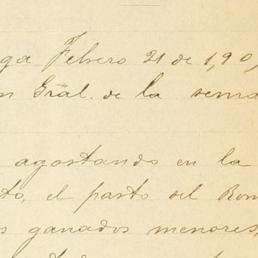 ga Febrero 21 de 190
n Gral. de la sema
agostando en la
to, el pasto del Rom
s ganados menores,